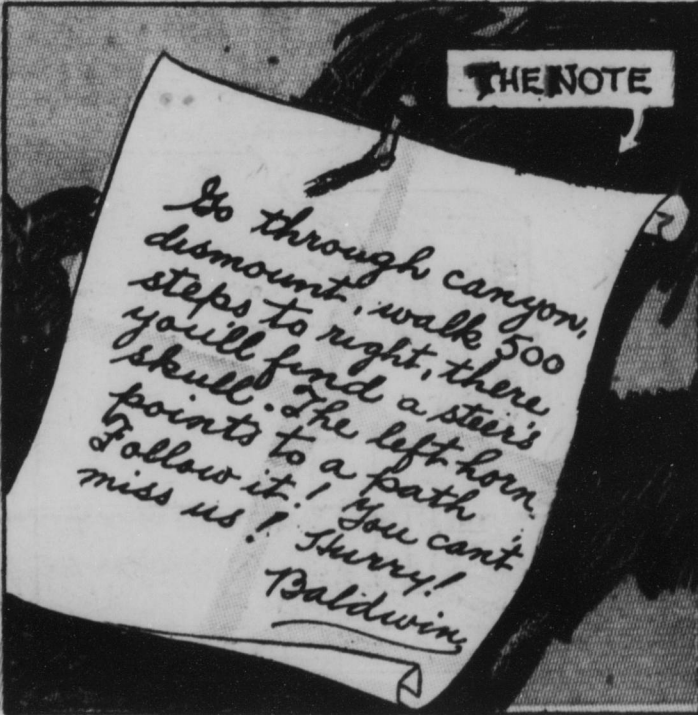 THE NOTE
Go through canyon,
dismount, walk 500
steps to right, there
you'll find a steer's
skull. The left horn
points to a path
Follow it! You can't
miss us! Hurry!
Baldwin